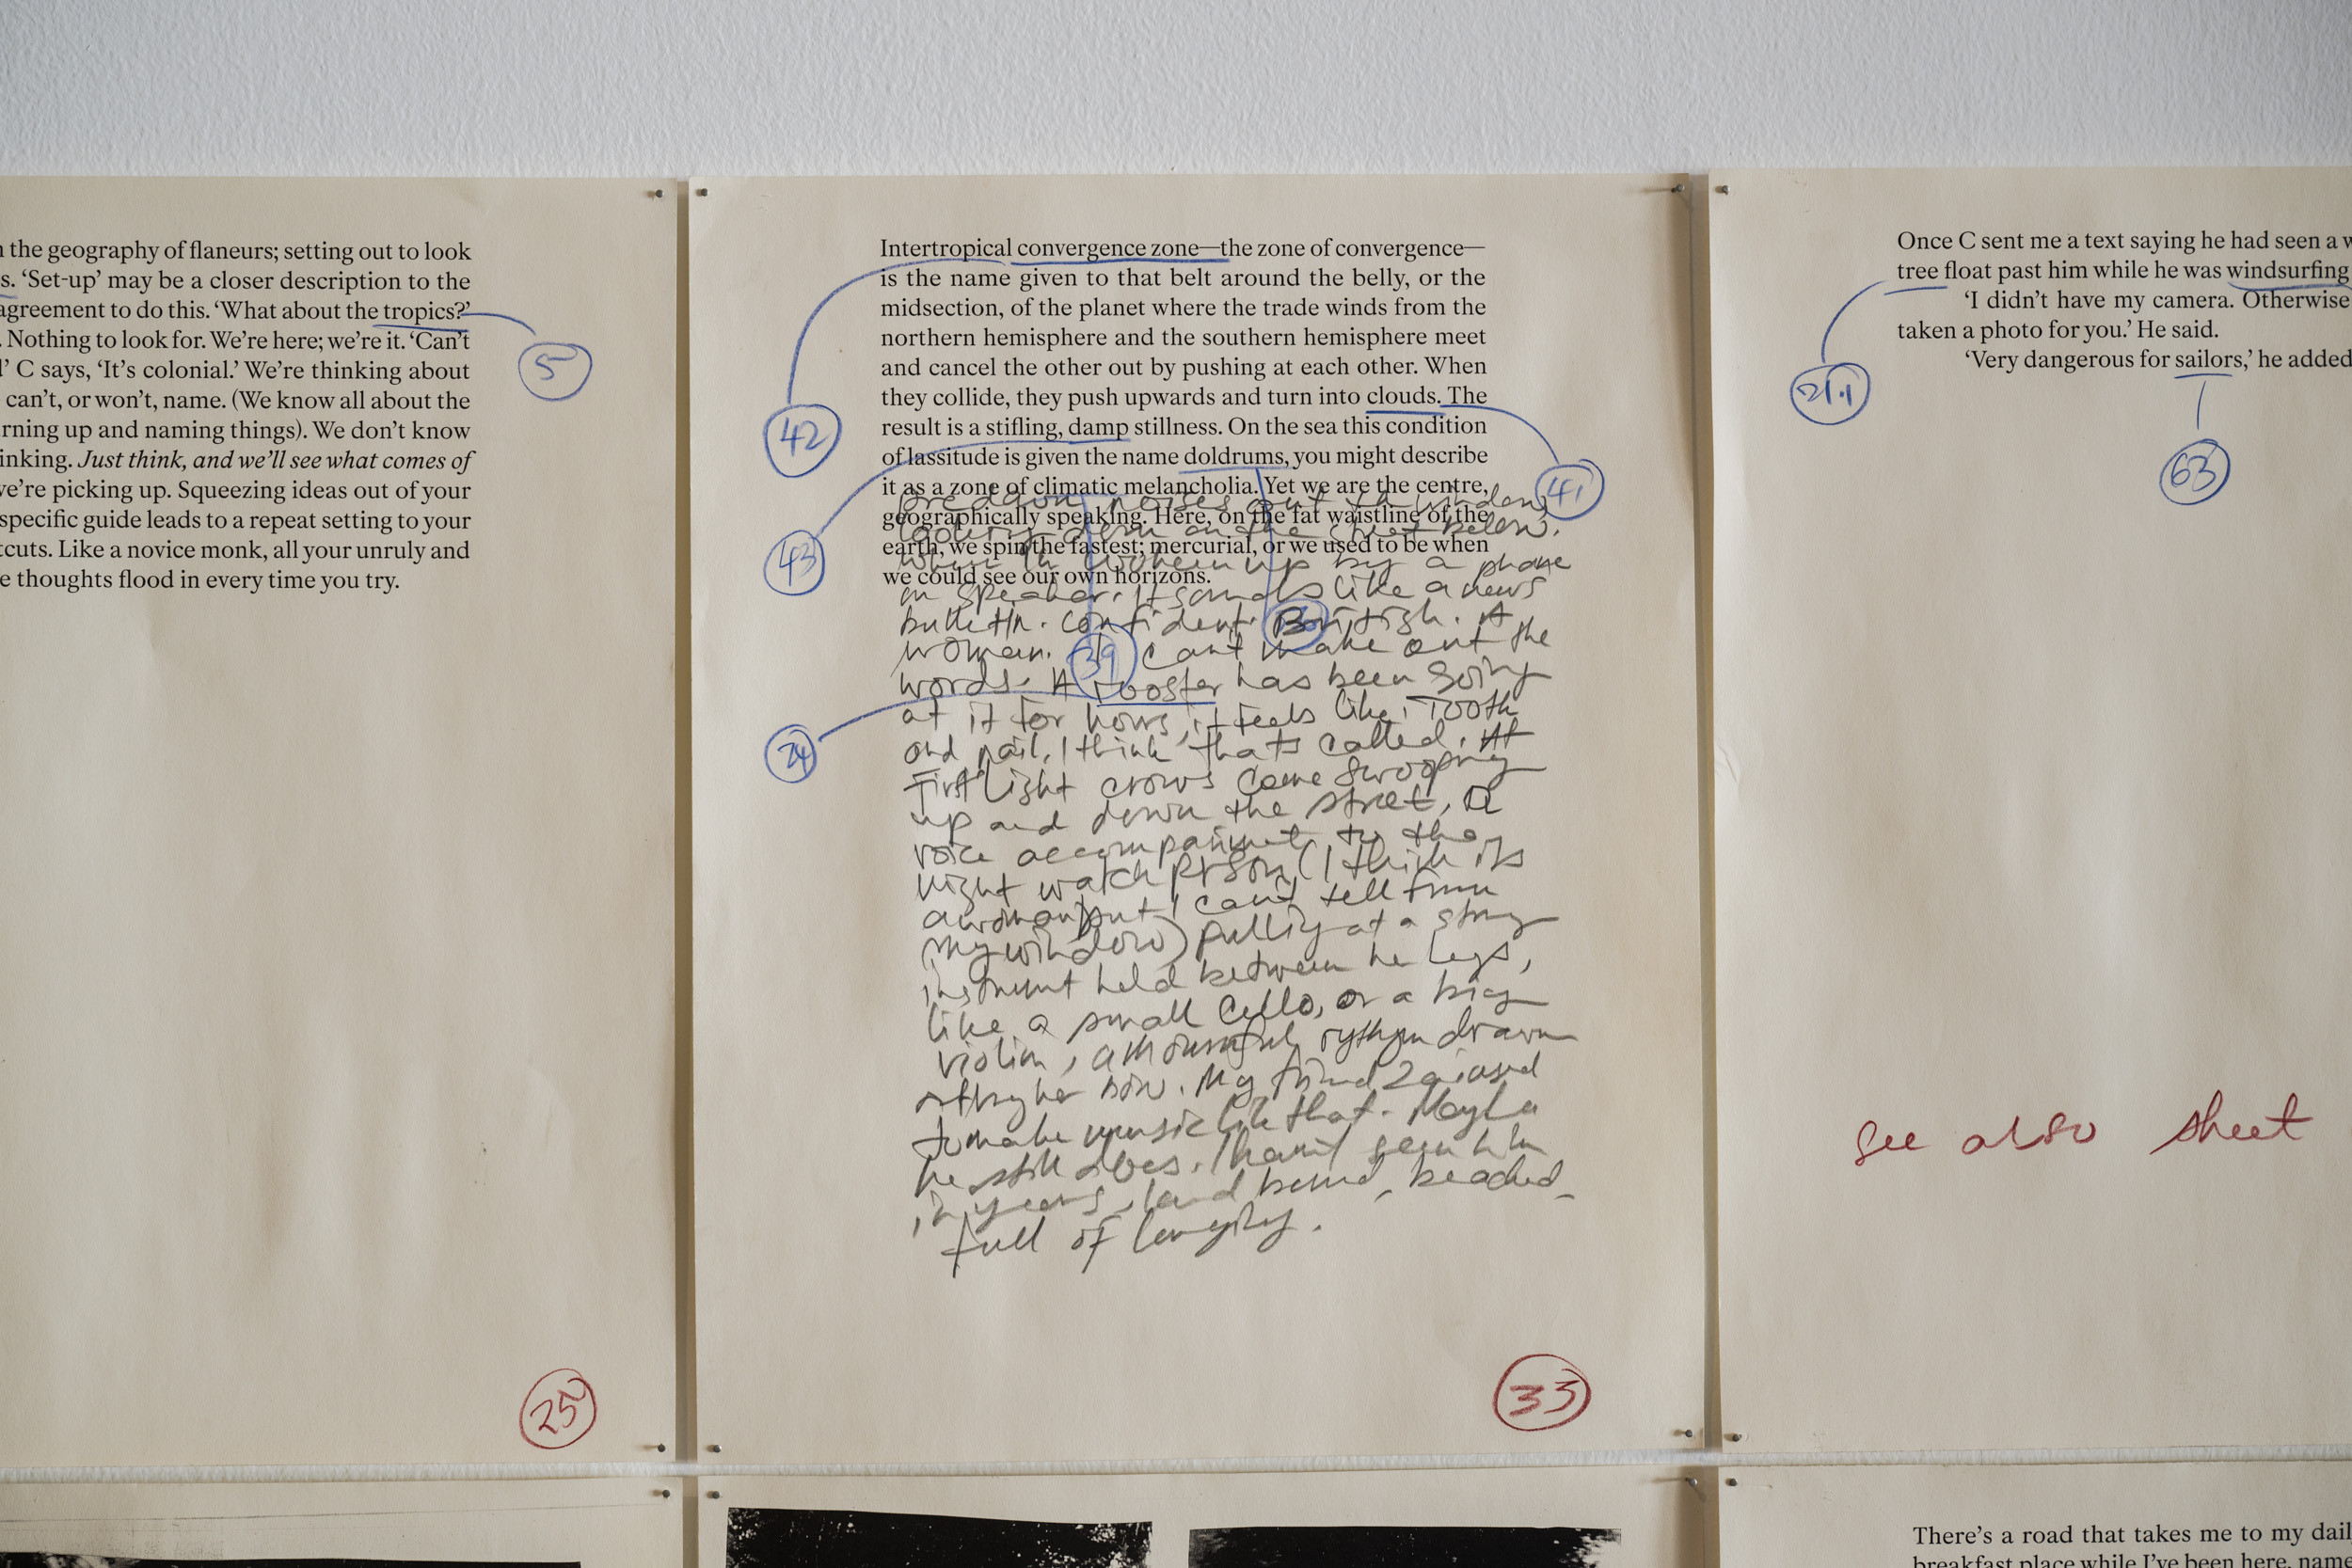 the geography of flaneurs; setting out to look
s. ‘Set-up’ may be a closer description to the
agreement to do this. ‘What about the tropics?’
. Nothing to look for. We’re here; we’re it. ‘Can’t
’ C says, ‘It’s colonial.’ We’re thinking about
can’t, or won’t, name. (We know all about the
rning up and naming things). We don’t know
inking. Just think, and we’ll see what comes of
we’re picking up. Squeezing ideas out of your
specific guide leads to a repeat setting to your
tcuts. Like a novice monk, all your unruly and
e thoughts flood in every time you try.
5
25
Intertropical convergence zone—the zone of convergence—
is the name given to that belt around the belly, or the
midsection, of the planet where the trade winds from the
northern hemisphere and the southern hemisphere meet
and cancel the other out by pushing at each other. When
they collide, they push upwards and turn into clouds. The
result is a stifling, damp stillness. On the sea this condition
of lassitude is given the name doldrums, you might describe
it as a zone of climatic melancholia. Yet we are the centre,
geographically speaking. Here, on the fat waistline of the
earth, we spin the fastest; mercurial, or we used to be when
we could see our own horizons.
42
43
41
39
24
pre dawn noises out the window,
looking down on the street below.
up by a phone
on speaker. It sounds like a news
bulletin. Confident. British. A
woman. I can't make out the
words. A rooster has been going
at it for hours, it feels like. Tooth
and nail, I think that's called. At
First light crows come swooping
up and down the street, a
voice accompaniment to the
night watch person (I think its
a woman but I can't tell from
my window) pulling at a string
instrument held between her legs,
like a small cello, or a big
violin, a mournful rythym drawn
her bow. My friend Zai used
to make music like that. Maybe
he still does. I haven't seen him
in years, land bound, beached,
full of longing.
33
Once C sent me a text saying he had seen a w
tree float past him while he was windsurfing
‘I didn’t have my camera. Otherwise
taken a photo for you.’ He said.
‘Very dangerous for sailors,’ he added
21.1
63
see also sheet
There’s a road that takes me to my dail
breakfast place while I’ve been here, name